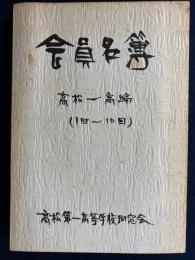 会員名簿
高松一高編
(1回～10回)
高松第一高等学校同窓会